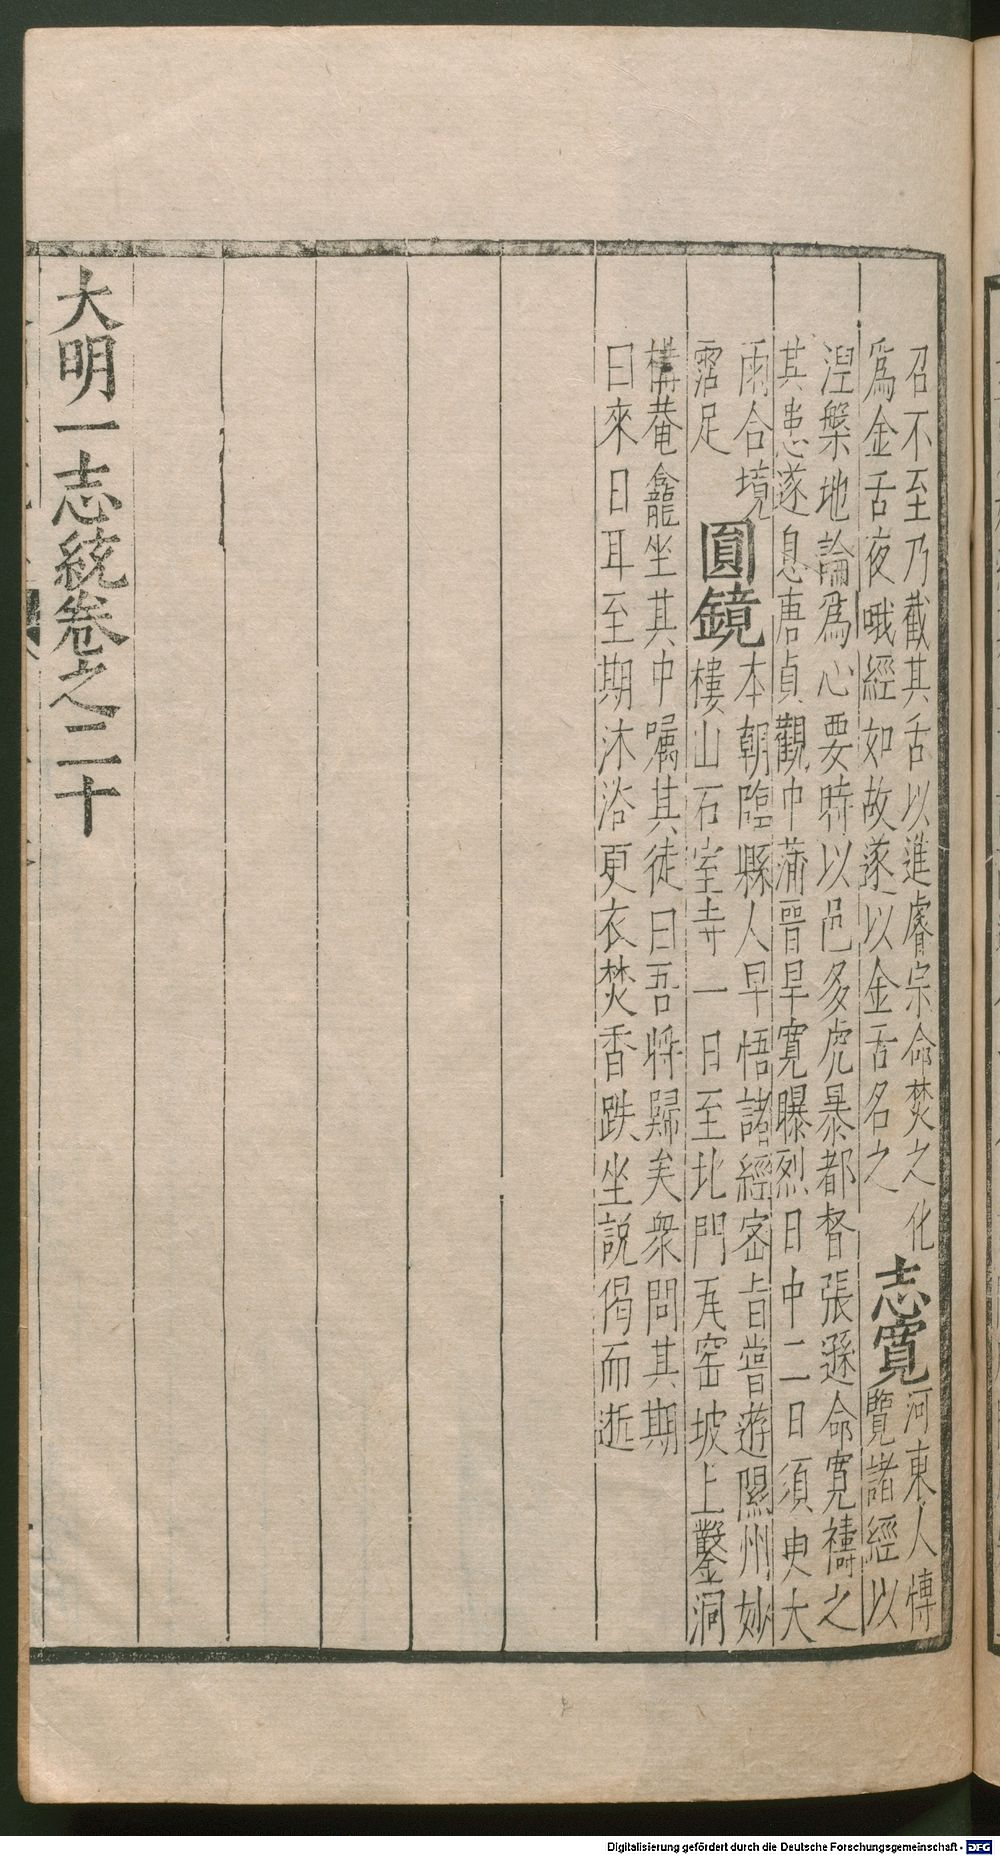 召不至乃截其舌以進睿宗命焚之化
爲金舌夜哦經如故遂以金舌名之
志寬
河東人慱
覽諸經以
涅槃地論爲心要時以邑多虎暴都督張遜命寬禱之
其患遂息唐貞觀中蒲晉旱寬曝烈日中二日須臾大
雨合境
霑足
圓鏡
本朝臨縣人早悟諸經密旨嘗遊隰州妙
樓山石室寺一日至北門瓦窑坡上鑿洞
構菴龕坐其中嘱其徒曰吾將歸矣衆問其期
曰來日耳至期沐浴更衣焚香趺坐説偈而逝
大明一志統卷之二十
Digitalisierung gefördert durch die Deutsche Forschungsgemeinschaft - DFG